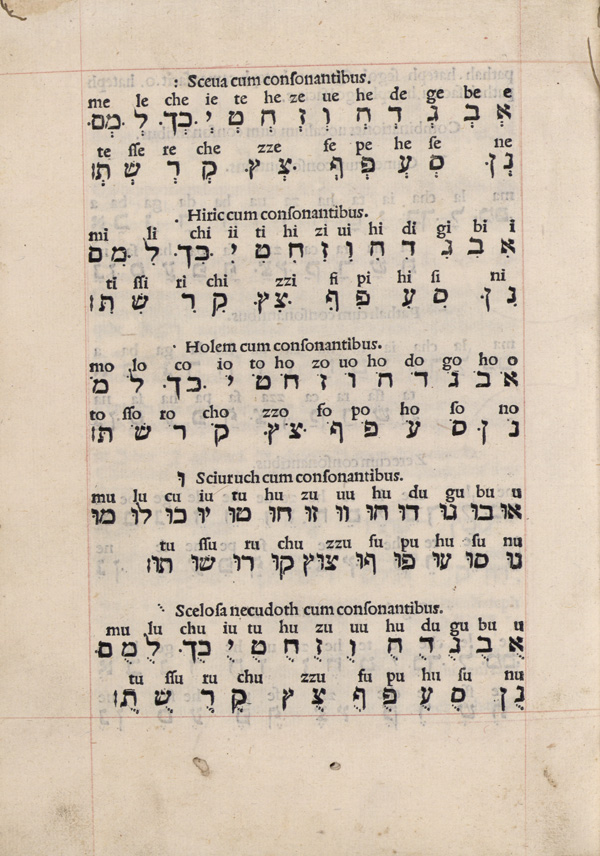 : Sceua cum conſonantibus.
me le che ie te he ze ue he de ge be e
אְ בְ גְ דְ הְ וְ זְ חְ טְ יְ .כְךְ. לְ .מְם.
te ſſe re che zze fe pe he ſe ne
נְן. סְ עְ פְףְ .צְץ. קְ רְ שְ תְ׃
. Hiric cum conſonantibus.
mi li chi ii ti hi zi ui hi di gi bi i
אִ בִ גִ דִ הִ וִ זִ חִ טִ יִ .כִךִ. לִ .מִם
ti ſſi ri chi zzi fi pi hi ſi ni
נִן. סִ עִ פִףִ .צִץ. קִ רִ שִ תִ׃
· Holem cum conſonantibus.
mo lo co io to ho zo uo ho do go ho o
אֹ בֹ גֹ דֹ הֹ וֹ זֹ חֹ טֹ יֹ .כֹךֹ. לֹ מֹ
to ſſo ro cho zzo fo po ho ſo no
נֹן. סֹ עֹ פֹףֹ .צֹץ. קֹ רֹ שֹ תֹ׃
וּ Sciuruch cum conſonantibus.
mu lu cu iu tu hu zu uu hu du gu bu u
אוּ בוּ גוּ דוּ הוּ ווּ זוּ חוּ טוּ יוּ כוּ לוּ מוּ
tu ſſu ru chu zzu fu pu hu ſu nu
נוּ סוּ עוּ פוּ ףוּ צוּץ קוּ רוּ שוּ תוּ׃
⋱ Sceloſa necudoth cum conſonantibus.
mu lu chu iu tu hu zu uu hu du gu bu u
אֻ בֻ גֻ דֻ הֻ וֻ זֻ חֻ טֻ יֻ כֻךְ. לֻ מֻם.
tu ſſu ru chu zzu fu pu hu ſu nu
נֻן. סֻ עֻ פֻףֻ צֻ ץ קֻ רֻ שֻ תֻ׃